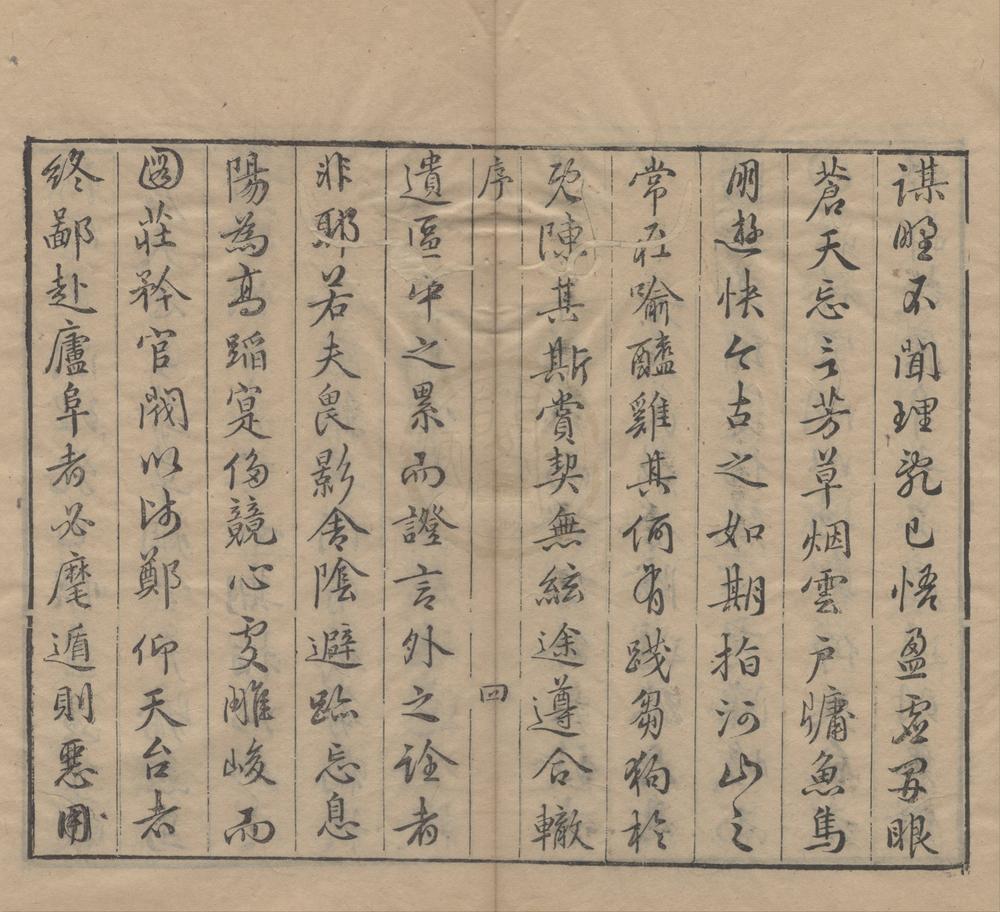 謀野不聞理乾已悟盈虛冥眼
蒼天忘言芳草烟雲戶牖魚鳥
朋遊快今古之如期指河山之
常在喻醯雞其何有踐芻狗於
既陳其斯賞契無絃途遵合轍
序 四
遺區中之累而證言外之詮者
非耶若夫畏影舍陰避跡忘息
陽為高蹈寔侈競心雯雕峻而
莊矜官閥以詩鄭仰天台者
終鄙赴廬阜者必麾遁則惡用